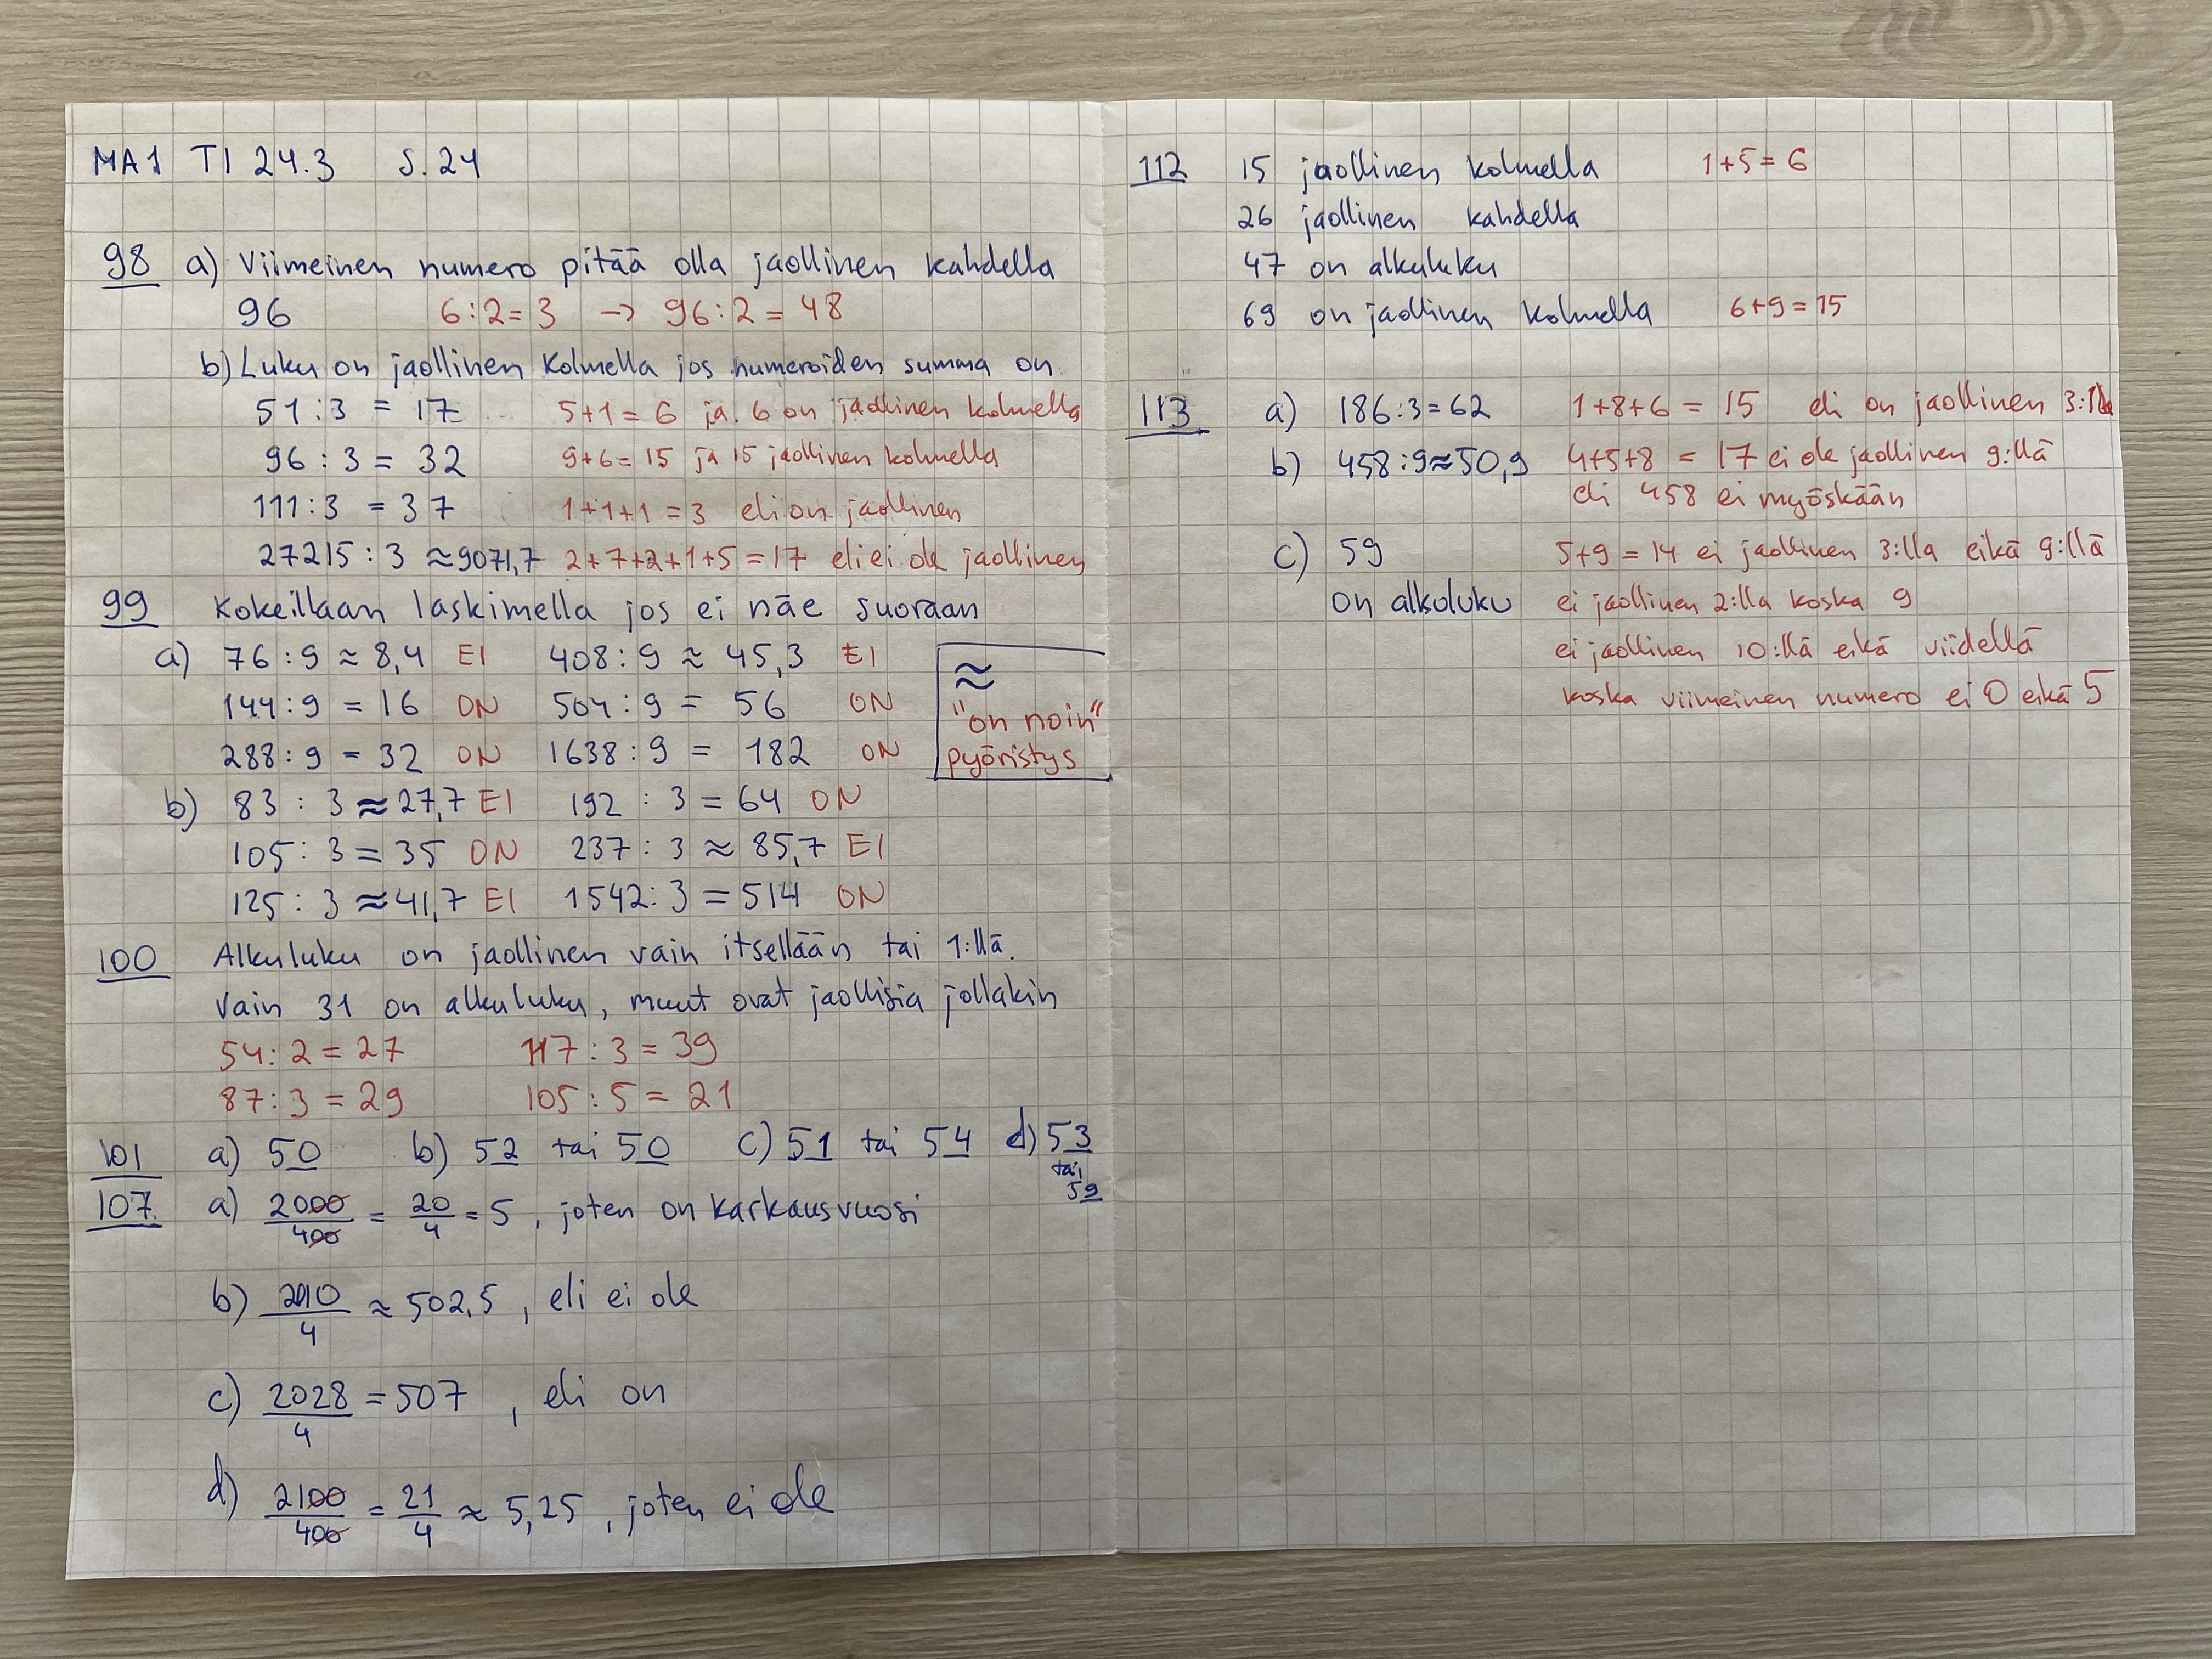 MA1 TI 24.3 S.24
98 a) Viimeinen numero pitää olla jaollinen kahdella
96 6:2=3 → 96:2=48
b) Luku on jaollinen kolmella jos numeroiden summa on
51:3 = 17 5+1=6 ja 6 on jaollinen kolmella
96:3 = 32 9+6=15 ja 15 jaollinen kolmella
111:3 = 37 1+1+1=3 eli on jaollinen
27215:3 ≈9071,7 2+7+2+1+5=17 eli ei ole jaollinen
99 Kokeillaan laskimella jos ei näe suoraan
a) 76:9 ≈ 8,4 EI 408:9 ≈ 45,3 EI
144:9 = 16 ON 504:9 = 56 ON
288:9 = 32 ON 1638:9 = 182 ON
≈
"on noin"
pyöristys
b) 83:3 ≈27,7 EI 192:3=64 ON
105:3=35 ON 237:3 ≈ 85,7 EI
125:3 ≈41,7 EI 1542:3=514 ON
100 Alkuluku on jaollinen vain itsellään tai 1:llä.
Vain 31 on alkuluku, muut ovat jaollisia jollakin
54:2=27 117:3=39
87:3=29 105:5=21
101 a) 50 b) 52 tai 50 c) 51 tai 54 d) 53
tai
59
107. a) 2000/400 = 20/4 = 5, joten on karkausvuosi
b) 2010/4 ≈ 502,5, eli ei ole
c) 2028/4 = 507, eli on
d) 2100/400 = 21/4 ≈ 5,25, joten ei ole
112 15 jaollinen kolmella 1+5=6
26 jaollinen kahdella
47 on alkuluku
69 on jaollinen kolmella 6+9=15
113 a) 186:3=62 1+8+6=15 eli on jaollinen 3:lla
b) 458:9≈50,9 4+5+8=17 ei ole jaollinen 9:llä
eli 458 ei myöskään
c) 59 5+9=14 ei jaollinen 3:lla eikä 9:llä
on alkoluku ei jaollinen 2:lla koska 9
ei jaollinen 10:llä eikä viidellä
koska viimeinen numero ei 0 eikä 5